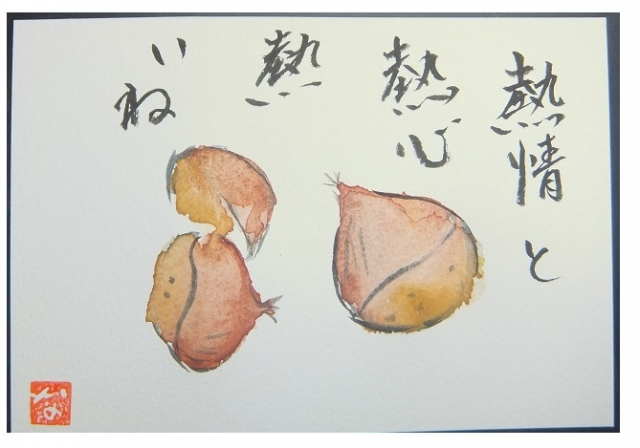 熱情と
熱心
熱
いね